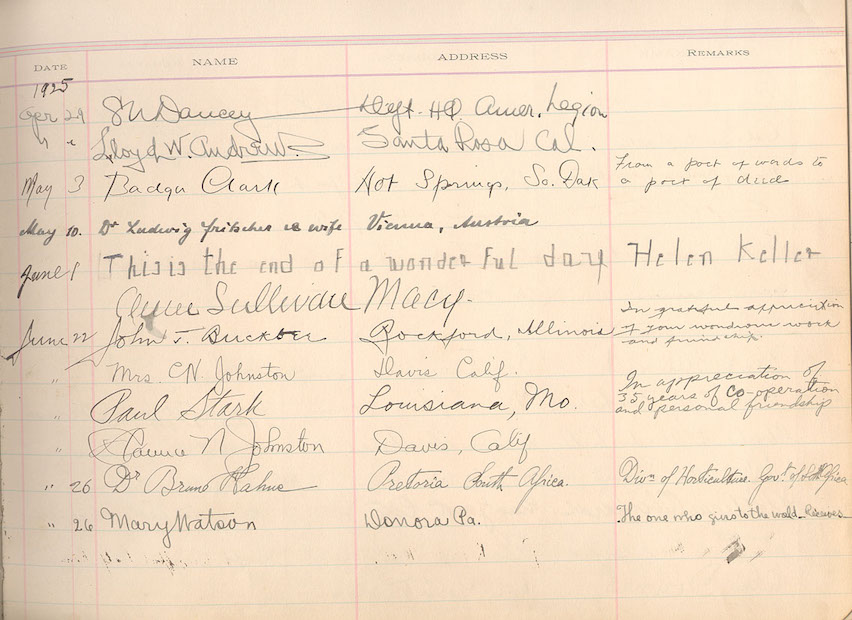 DATE NAME ADDRESS REMARKS
1925
Apr 29 Dauncey Dept. HQ Amer. Legion
" " Lloyd W. Andrews. Santa Rosa Cal.
May 3 Badger Clark Hot Springs, So. Dak From a poet of words to
a poet of deed
May 10. Dr Ludwig Fritscher & wife Vienna, Austria
June 1 This is the end of a wonderful day Helen Keller
Anne Sullivan Macy.
June 22 John T. Buckbee Rockford, Illinois In grateful appreciation
of your wondrous work
and friendship.
" Mrs. C N. Johnston Davis Calif.
" Paul Stark Louisiana, Mo. In appreciation of
35 years of co-operation
and personal friendship
" Clarence N Johnston Davis, Calif
" 26 Dr Bruno Pretoria South Africa. Divn of Horticulture. Govt. of South Africa
" 26 Mary Watson Donora Pa. The one who gives to the world Receives